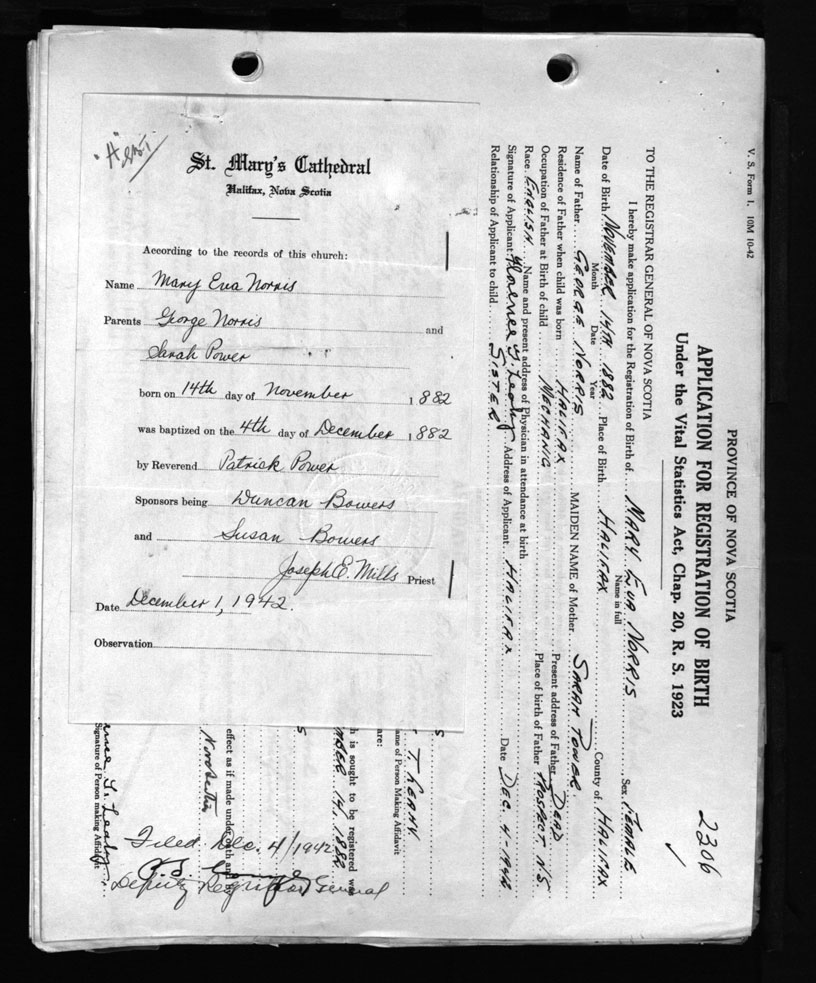 "A"
St. Mary's Cathedral
Halifax, Nova Scotia
According to the records of this church:
Name Mary Eva Norris
Parents George Norris and
Sarah Power
born on 14th day of November 1882
was baptized on the 4th day of December 1882
by Reverend Patrick Power
Sponsors being Duncan Bowers
and Susan Bowers
Joseph E. Mills Priest
Date December 1, 1942.
Observation
V. S. Form 1. 10M 10-42
PROVINCE OF NOVA SCOTIA
2306
APPLICATION FOR REGISTRATION OF BIRTH
Under the Vital Statistics Act, Chap. 20, R. S. 1923
TO THE REGISTRAR GENERAL OF NOVA SCOTIA
I hereby make application for the Registration of Birth of MARY EVA NORRIS Sex FEMALE
Name in full
Date of Birth NOVEMBER 14TH 1882 Place of Birth HALIFAX County of HALIFAX
Month Date Year
Name of Father GEORGE NORRIS MAIDEN NAME of Mother SARAH POWER.
Residence of Father when child was born HALIFAX Present address of Father DEAD
Occupation of Father at Birth of child MECHANIC Place of birth of Father PROSPECT N.S.
Race ENGLISH Name and present address of Physician in attendance at birth
Signature of Applicant Florence G. Leahy Address of Applicant HALIFAX Date DEC. 4-1942
Relationship of Applicant to child SISTER
S
T. LEAHY
ame of Person Making Affidavit
are:
h is sought to be registered was
MBER 14, 1882
S
effect as if made under oath and
Signature of Person making Affidavit
Filed Dec. 4/1942
Deputy Registrar General